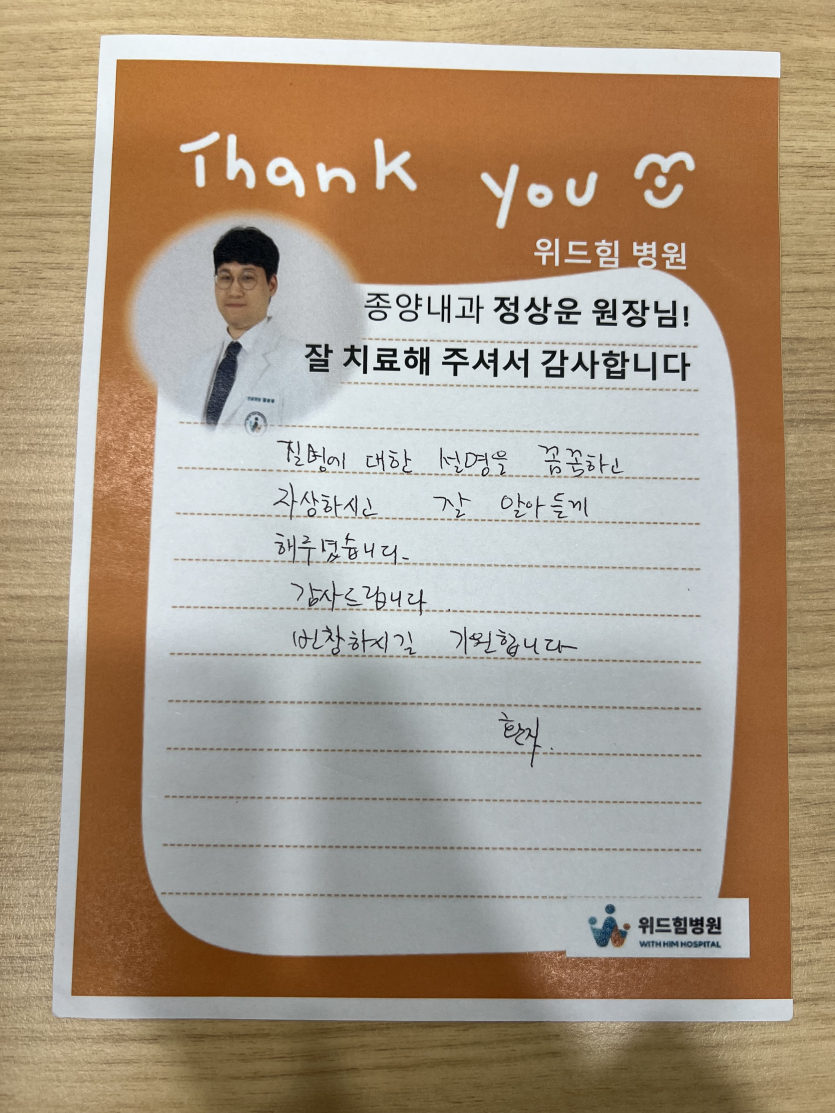 Thank you
위드힘 병원
종양내과 정상운 원장님!
잘 치료해 주셔서 감사합니다
질병에 대한 설명을 꼼꼼하고
자상하시고 잘 알아듣게
해주셨습니다.
감사드립니다.
번창하시길 기원합니다
환자.
위드힘병원
WITH HIM HOSPITAL